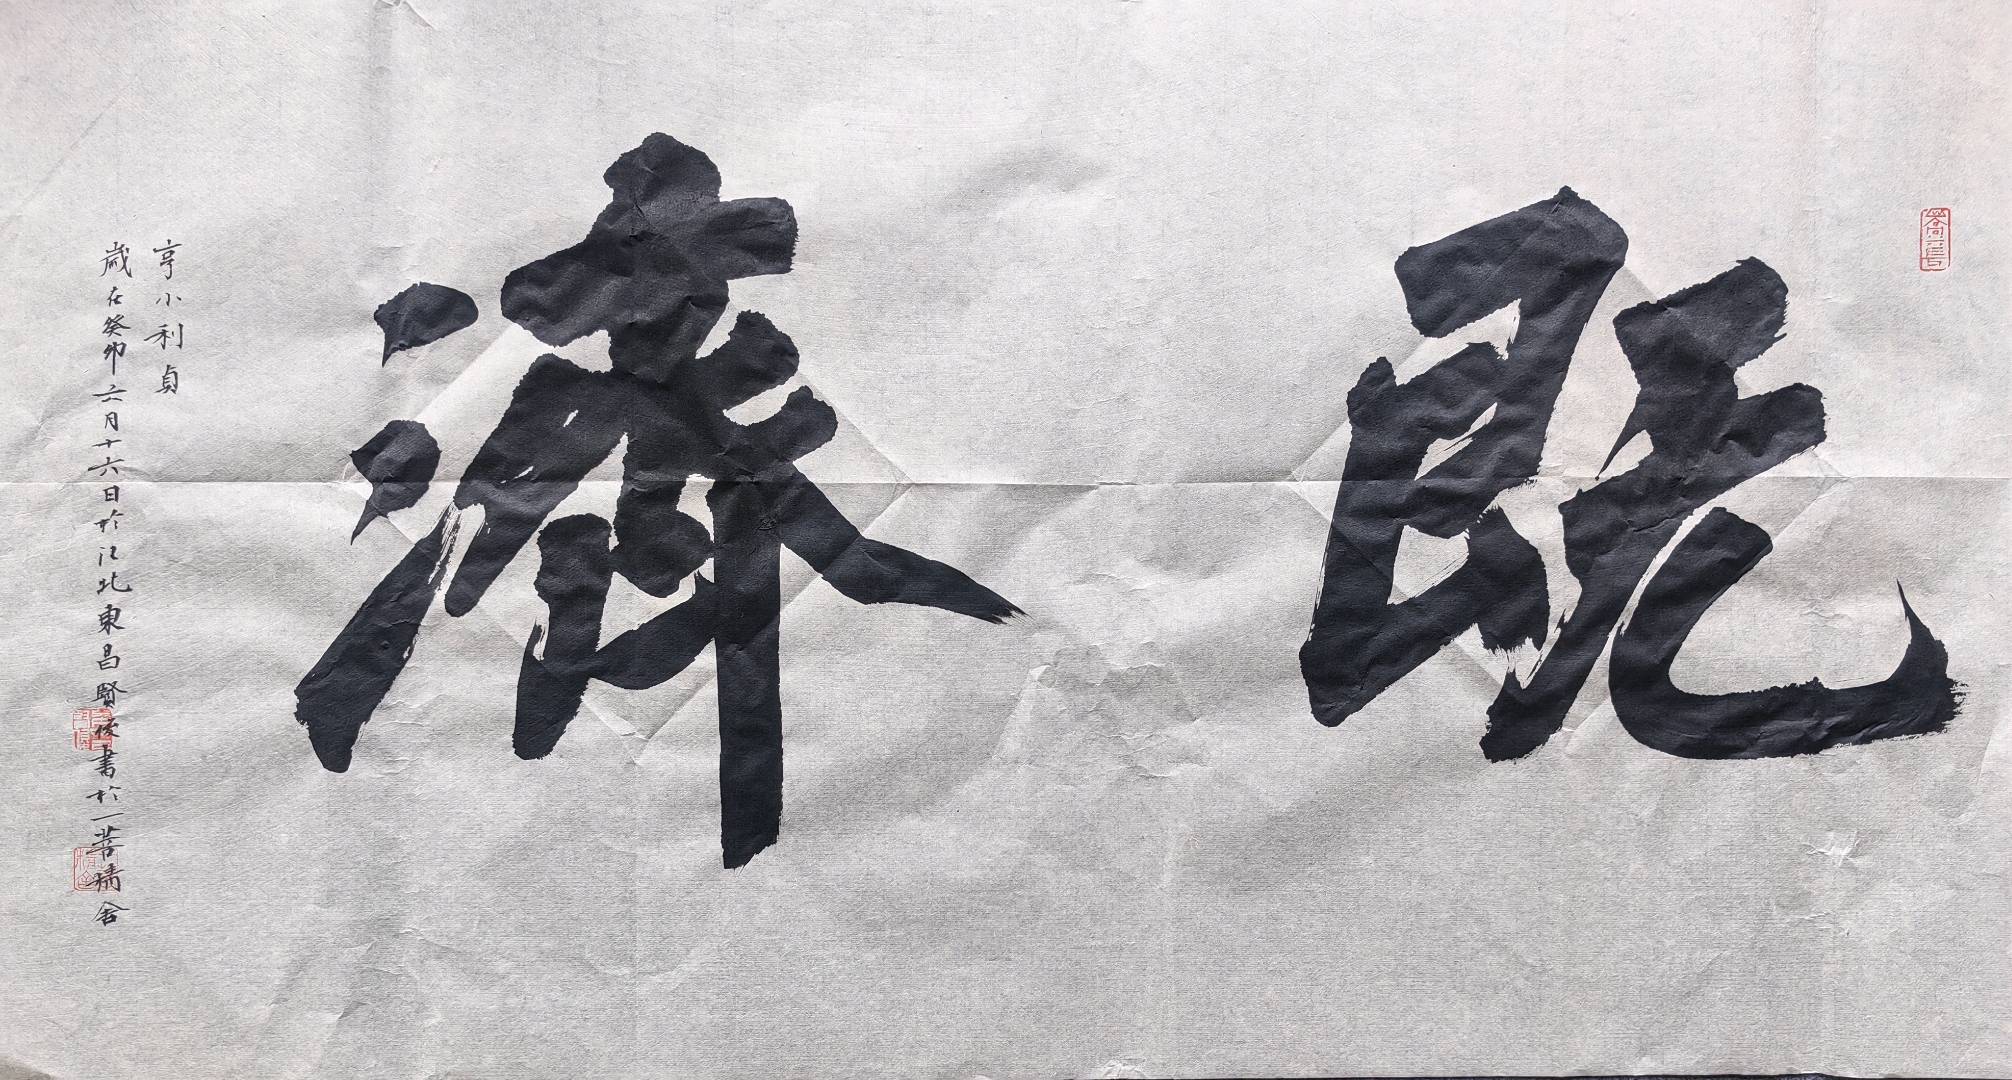 既濟
亨小利貞
歲在癸卯六月十六日於江北東昌賢俊書於一菩提舍